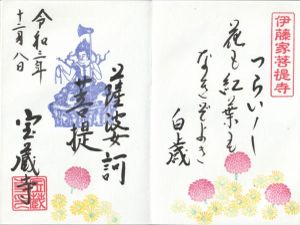 伊藤家菩提寺
花も紅葉も
なきぞよき
白歳
薩婆訶
菩提
宝蔵寺
令和三年
十二月八日